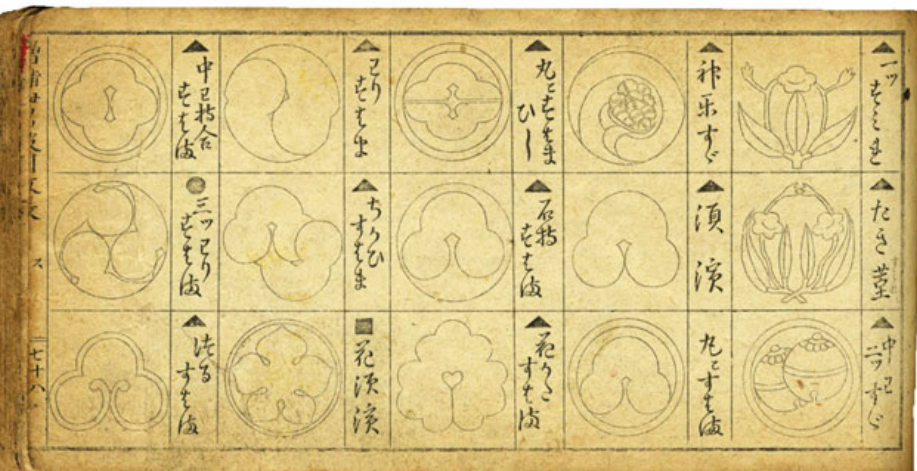 一ツすみれ
たき菫
中わ二ツすゞ
神楽すゞ
須濱
丸ニすはま
丸ニすはまひし
石持すはま
花かたすはま
わりすはま
ちがひすはま
花須濱
中わ持合すはま
三ツわりすはま
つるすはま
ス
七十八